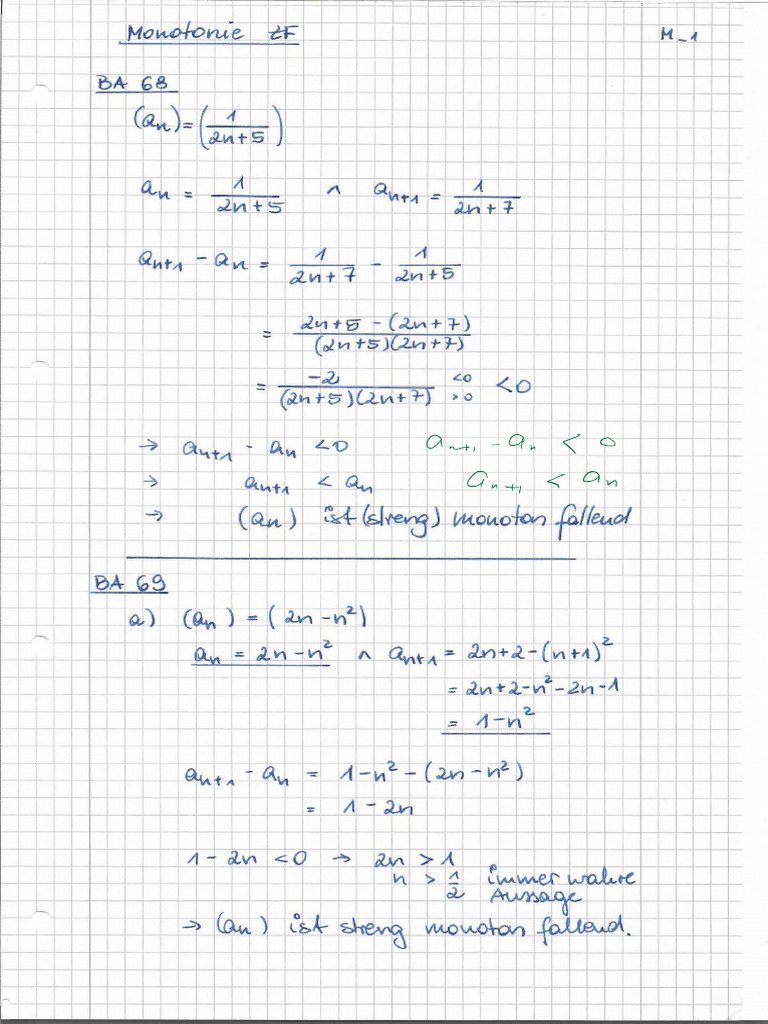 Monotonie ZF M_1
BA 68
(aₙ) = (1/(2n+5))
aₙ = 1/(2n+5) ∧ aₙ₊₁ = 1/(2n+7)
aₙ₊₁ - aₙ = 1/(2n+7) - 1/(2n+5)
= (2n+5 - (2n+7))/((2n+5)(2n+7))
= -2/((2n+5)(2n+7)) <0 >0 <0
→ aₙ₊₁ - aₙ < 0 aₙ₊₁ - aₙ < 0
→ aₙ₊₁ < aₙ aₙ₊₁ < aₙ
→ (aₙ) ist (streng) monoton fallend
BA 69
a) (aₙ) = (2n - n²)
aₙ = 2n - n² ∧ aₙ₊₁ = 2n+2-(n+1)²
= 2n+2-n²-2n-1
= 1-n²
aₙ₊₁ - aₙ = 1-n² - (2n-n²)
= 1-2n
1-2n < 0 → 2n > 1
n > 1/2 immer wahre
Aussage
→ (aₙ) ist streng monoton fallend.